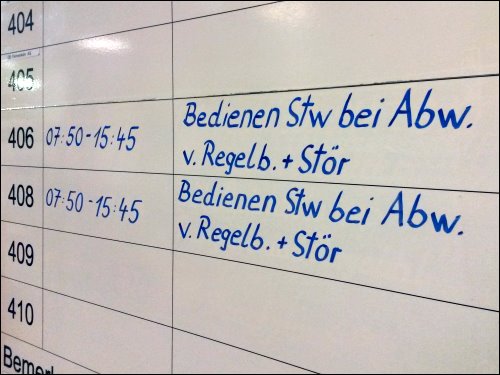 404
405
406 07:50-15:45 Bedienen Stw bei Abw.
v. Regelb. + Stör
408 07:50-15:45 Bedienen Stw bei Abw.
v. Regelb. + Stör
409
410